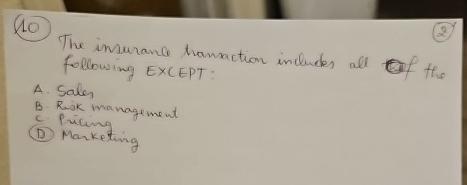 10
2
The insurance transaction includes all of the
following EXCEPT:
A. Sales
B. Risk management
C. Pricing
D Marketing